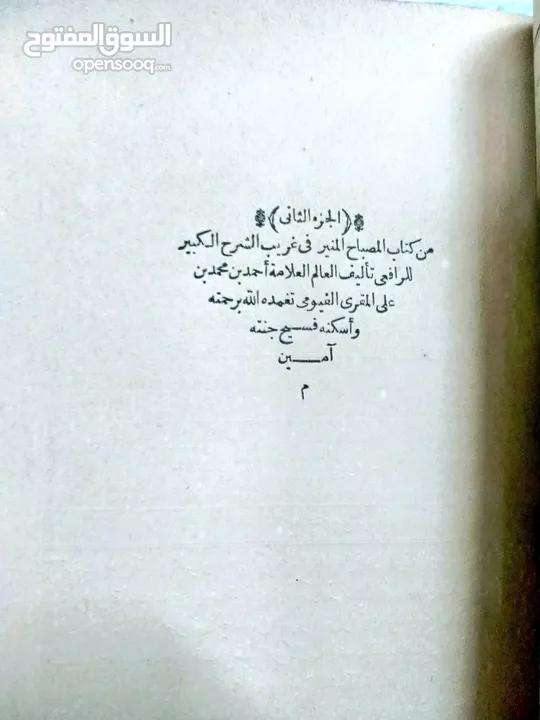 السوق المفتوح
opensooq.com
﴿الجزء الثانى﴾
من كتاب المصباح المنير فى غريب الشرح الكبير
للرافعى تأليف العالم العلامة أحمد بن محمد بن
على المقرى الفيومى تغمده الله برحمته
وأسكنه فسيح جنته
آمـــين
م